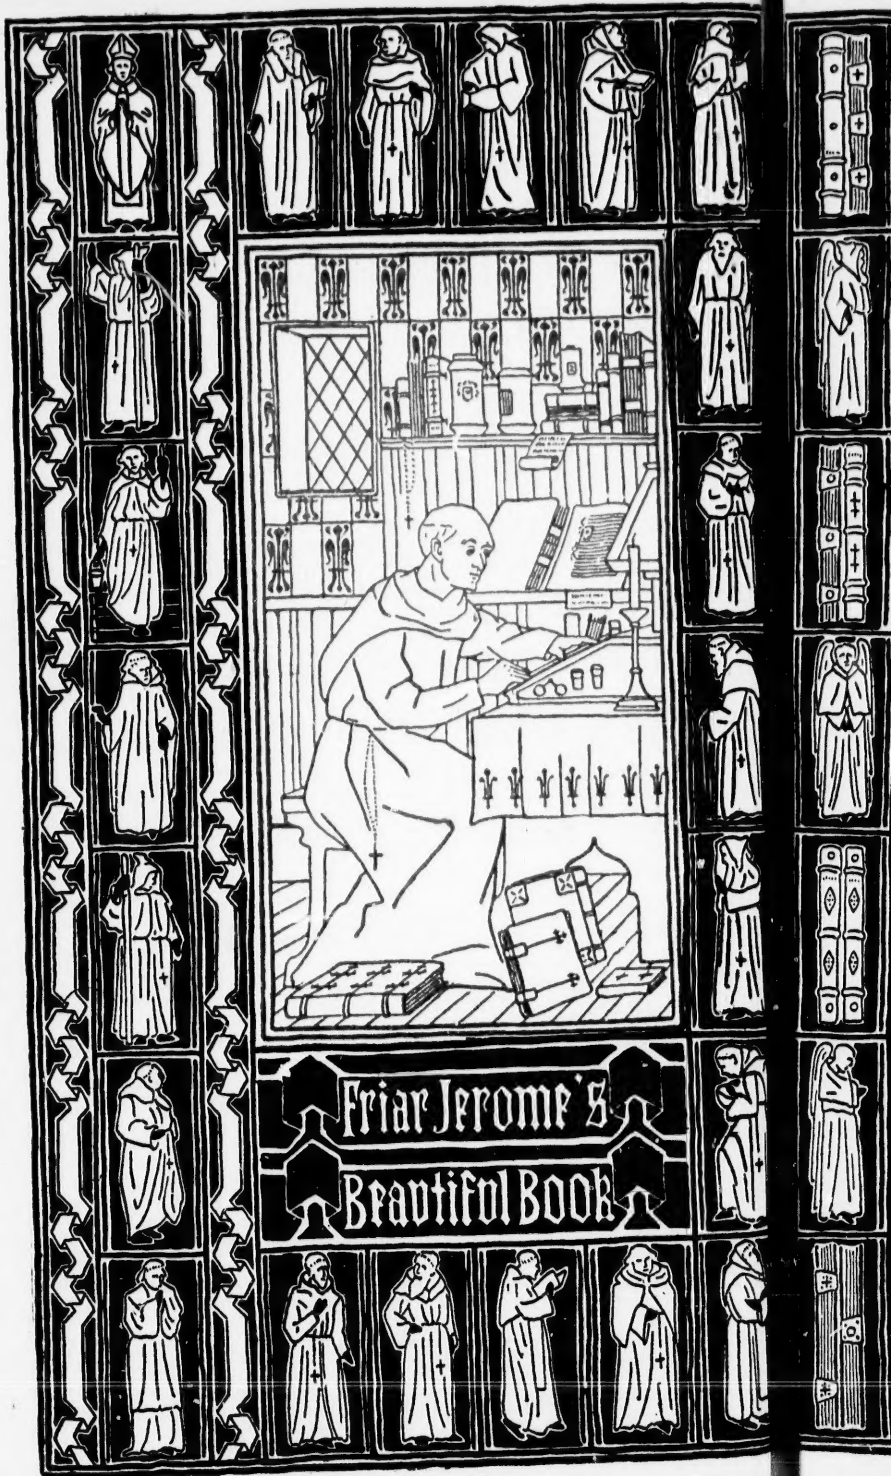 Friar Jerome's
Beautiful Book